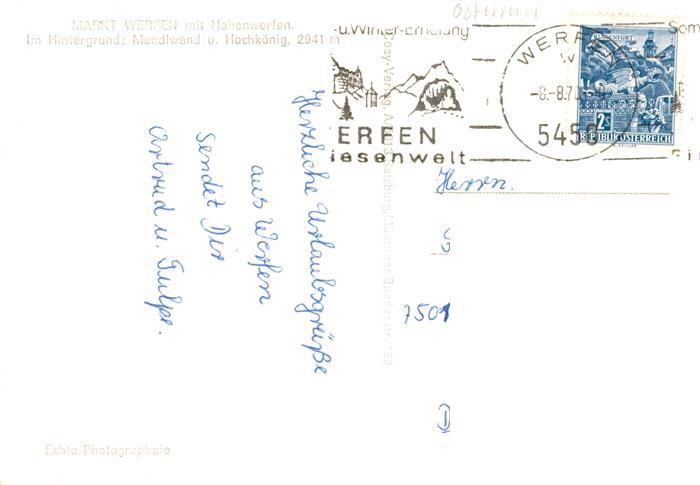 MARKT WERFEN mit Hohenwerfen.
Im Hintergrund: Mandlwand u. Hochkönig, 2941 m
-u.Winter-Erholung
ERFEN
iesenwelt
WERFEN
-8.-8.7
5450
Som
Ei
KLAGENFURT
2S
REPUBLIK ÖSTERREICH
Herzliche Urlaubsgrüße
aus Werfen
sendet Dir
Ortrud u. Tulpe.
Herrn.
7501
D
Cosy-Verlag, Salzburg, Münchner Bundesstr. 152
Echte Photographaie